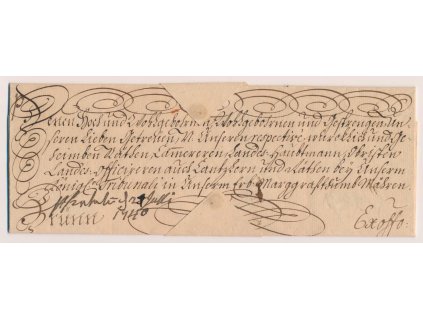 Denen Hoch und Wohlgebohrn auch Wohlgebornen und Gestrengen Un-
seren Lieben Getreuen N. Unseren respective würcklich und Ge-
heimben Räthen Cämereren Landes-Hauptmann, Obristen
Landes-Officieren auch Cantzlern und Räthen bey Unserm
Königl: Tribunali in Unserm Erb-Marggraffthumb Mähren.
Juli
1740
Brünn
Ex offo: